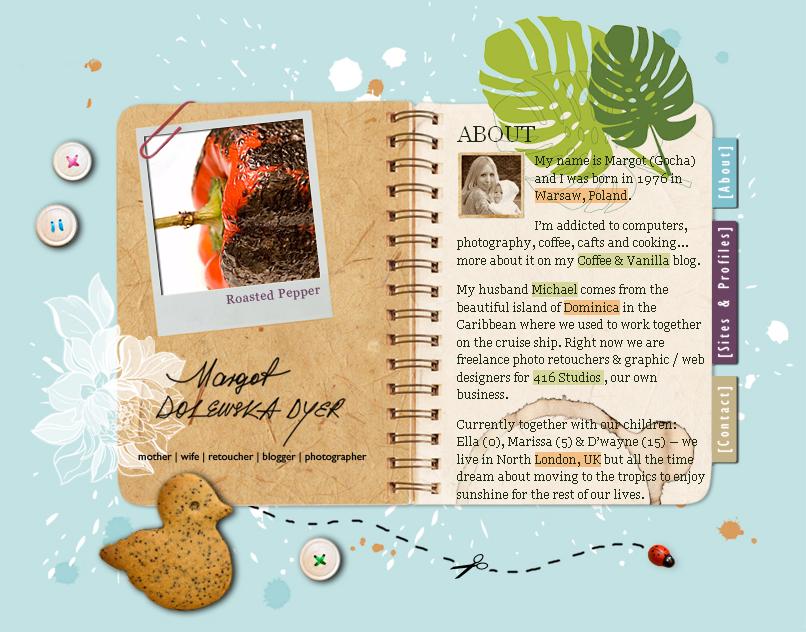 Roasted Pepper
Margot
DOLEWSKA DYER
mother | wife | retoucher | blogger | photographer
ABOUT
My name is Margot (Gocha)
and I was born in 1976 in
Warsaw, Poland.
I'm addicted to computers,
photography, coffee, cafts and cooking...
more about it on my Coffee & Vanilla blog.
My husband Michael comes from the
beautiful island of Dominica in the
Caribbean where we used to work together
on the cruise ship. Right now we are
freelance photo retouchers & graphic / web
designers for 416 Studios , our own
business.
Currently together with our children:
Ella (0), Marissa (5) & D'wayne (15) — we
live in North London, UK but all the time
dream about moving to the tropics to enjoy
sunshine for the rest of our lives.
[About]
[Sites & Profiles]
[Contact]